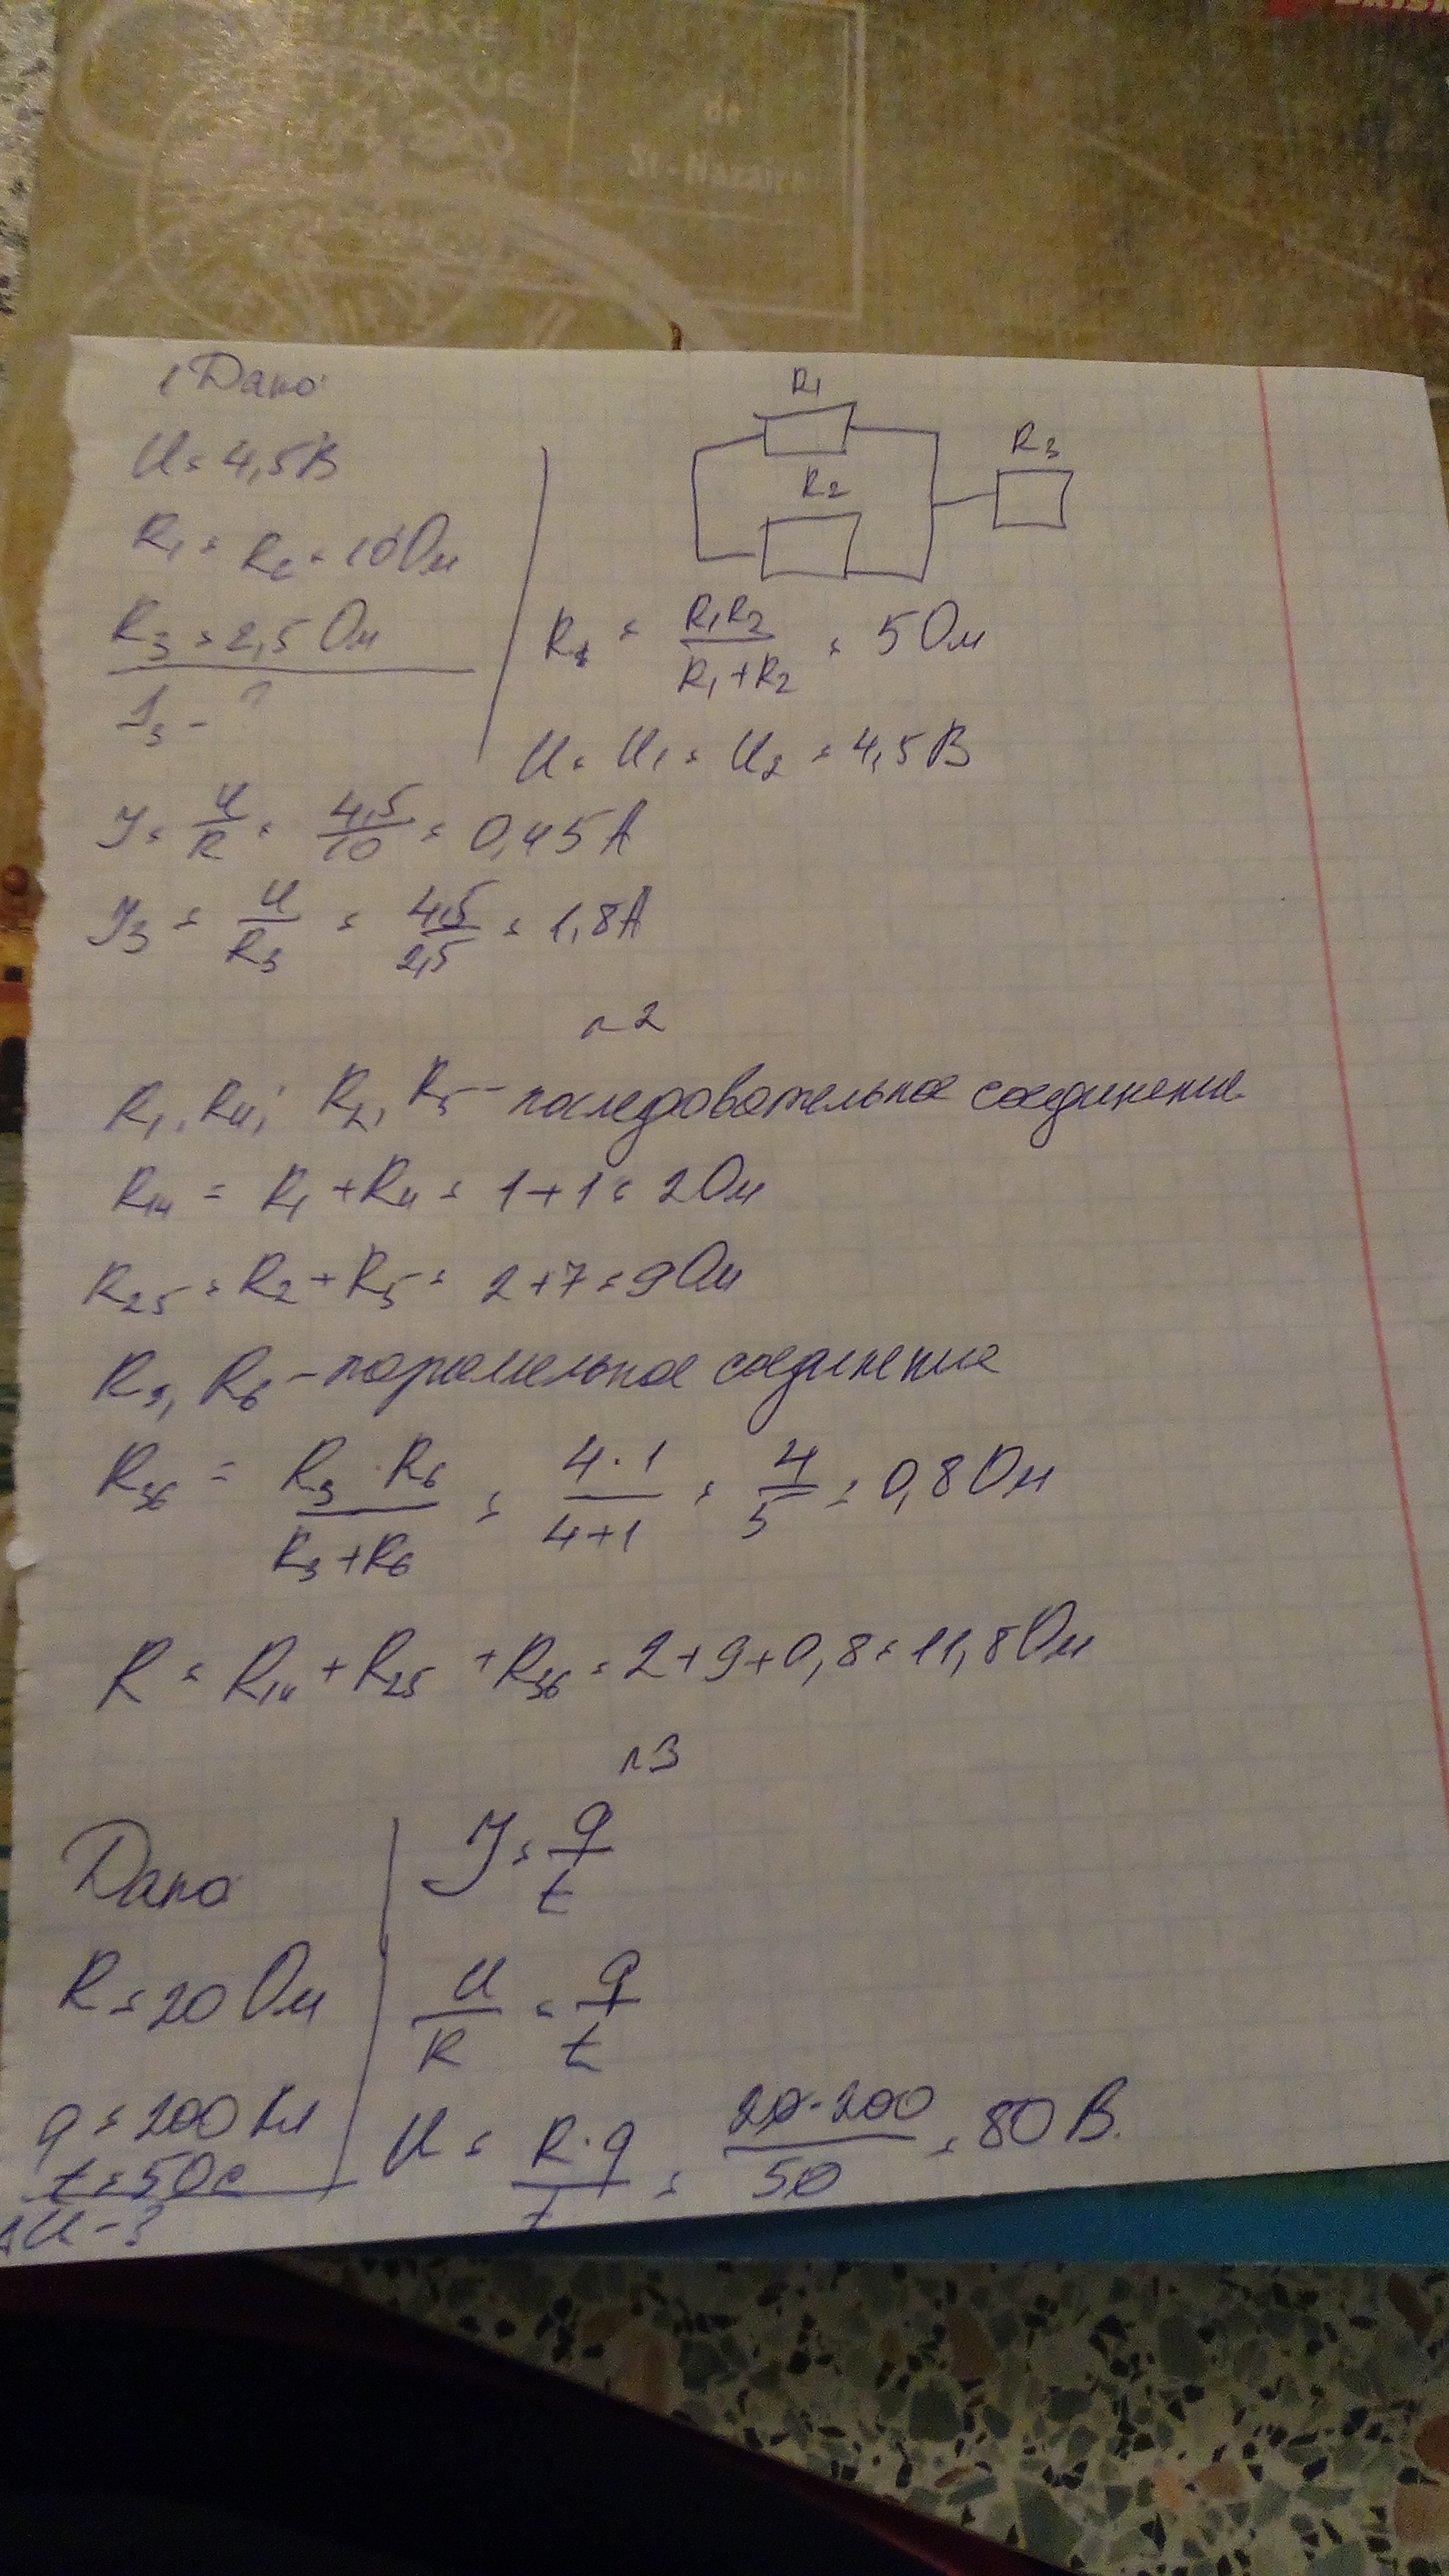 BRISK
de
St-Nazaire
1 Дано:
U = 4,5В
R1 = R2 = 10Ом
R3 = 2,5 Ом
I3 - ?
R1
R2
R3
R1 = R1R2 / R1+R2 = 5 Ом
U = U1 = U2 = 4,5 В
I = U/R = 4,5/10 = 0,45 А
I3 = U/R3 = 4,5/2,5 = 1,8А
n2
R1, R4; R2, R5 - последовательное соединение
R14 = R1 + R4 = 1 + 1 = 2 Ом
R25 = R2 + R5 = 2 + 7 = 9 Ом
R3, R6 - параллельное соединение
R36 = R3 · R6 / R3 + R6 = 4 · 1 / 4+1 = 4/5 = 0,8 Ом
R = R14 + R25 + R36 = 2 + 9 + 0,8 = 11,8 Ом
n3
Дано
R = 20 Ом
q = 200 Кл
t = 50с
U - ?
I = q/t
U/R = q/t
U = R · q / t = 20 · 200 / 50 = 80 В.